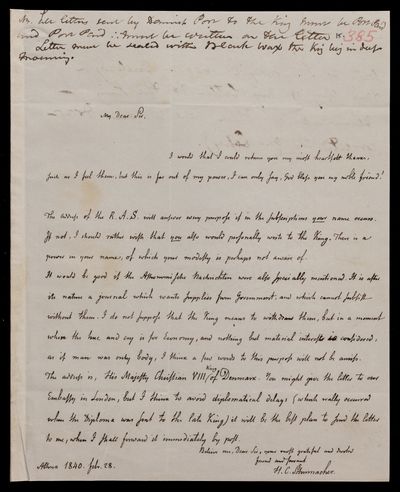 All letters sent by Danish Post to the King must be
and Post Paid :. must be written on the letter & 385
Letter must be sealed with Black wax the King being in deep
mourning.
My dear Sir,
I would that I could return you my most heartfelt thanks,
just as I feel them, but this is far out of my power, I can only say, God bless you my noble friend!
The address of the R.A.S. will answer every purpose if in the subscriptions your name occurs.
If not, I should rather wish that you also would personally write to the King. There is a
power in your name, of which your modesty is perhaps not aware of.
It would be good if the Astronomische Nachrichten were also specially mentioned. It is after
its nature a journal which wants supplies from Government, and which cannot subsist
without them. I do not suppose that the King means to withdraw them, but in a moment
where the hue and cry is for economy, and nothing but material interests is considered,
as if man was only body, I think a few words to this purpose will not be amiss.
The address is, His Majesty Christian VIII (King of) Denmark. You might give the letter to our
Embassy in London, but I think to avoid diplomatical delays (which really occurred
when the Diploma was sent to the late King) it will be the best plan to send the letter
to me, when I shall forward it immediately by post.
Believe me, dear Sir, your most grateful and devoted
friend and servant
H. C. Schumacher.
Altona 1840. febr. 28.